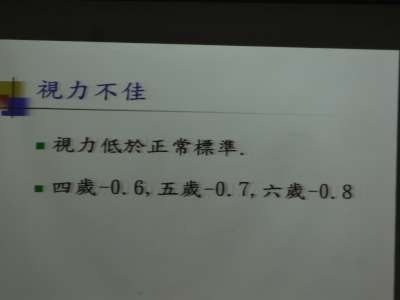 視力不佳
視力低於正常標準.
四歲-0.6,五歲-0.7,六歲-0.8